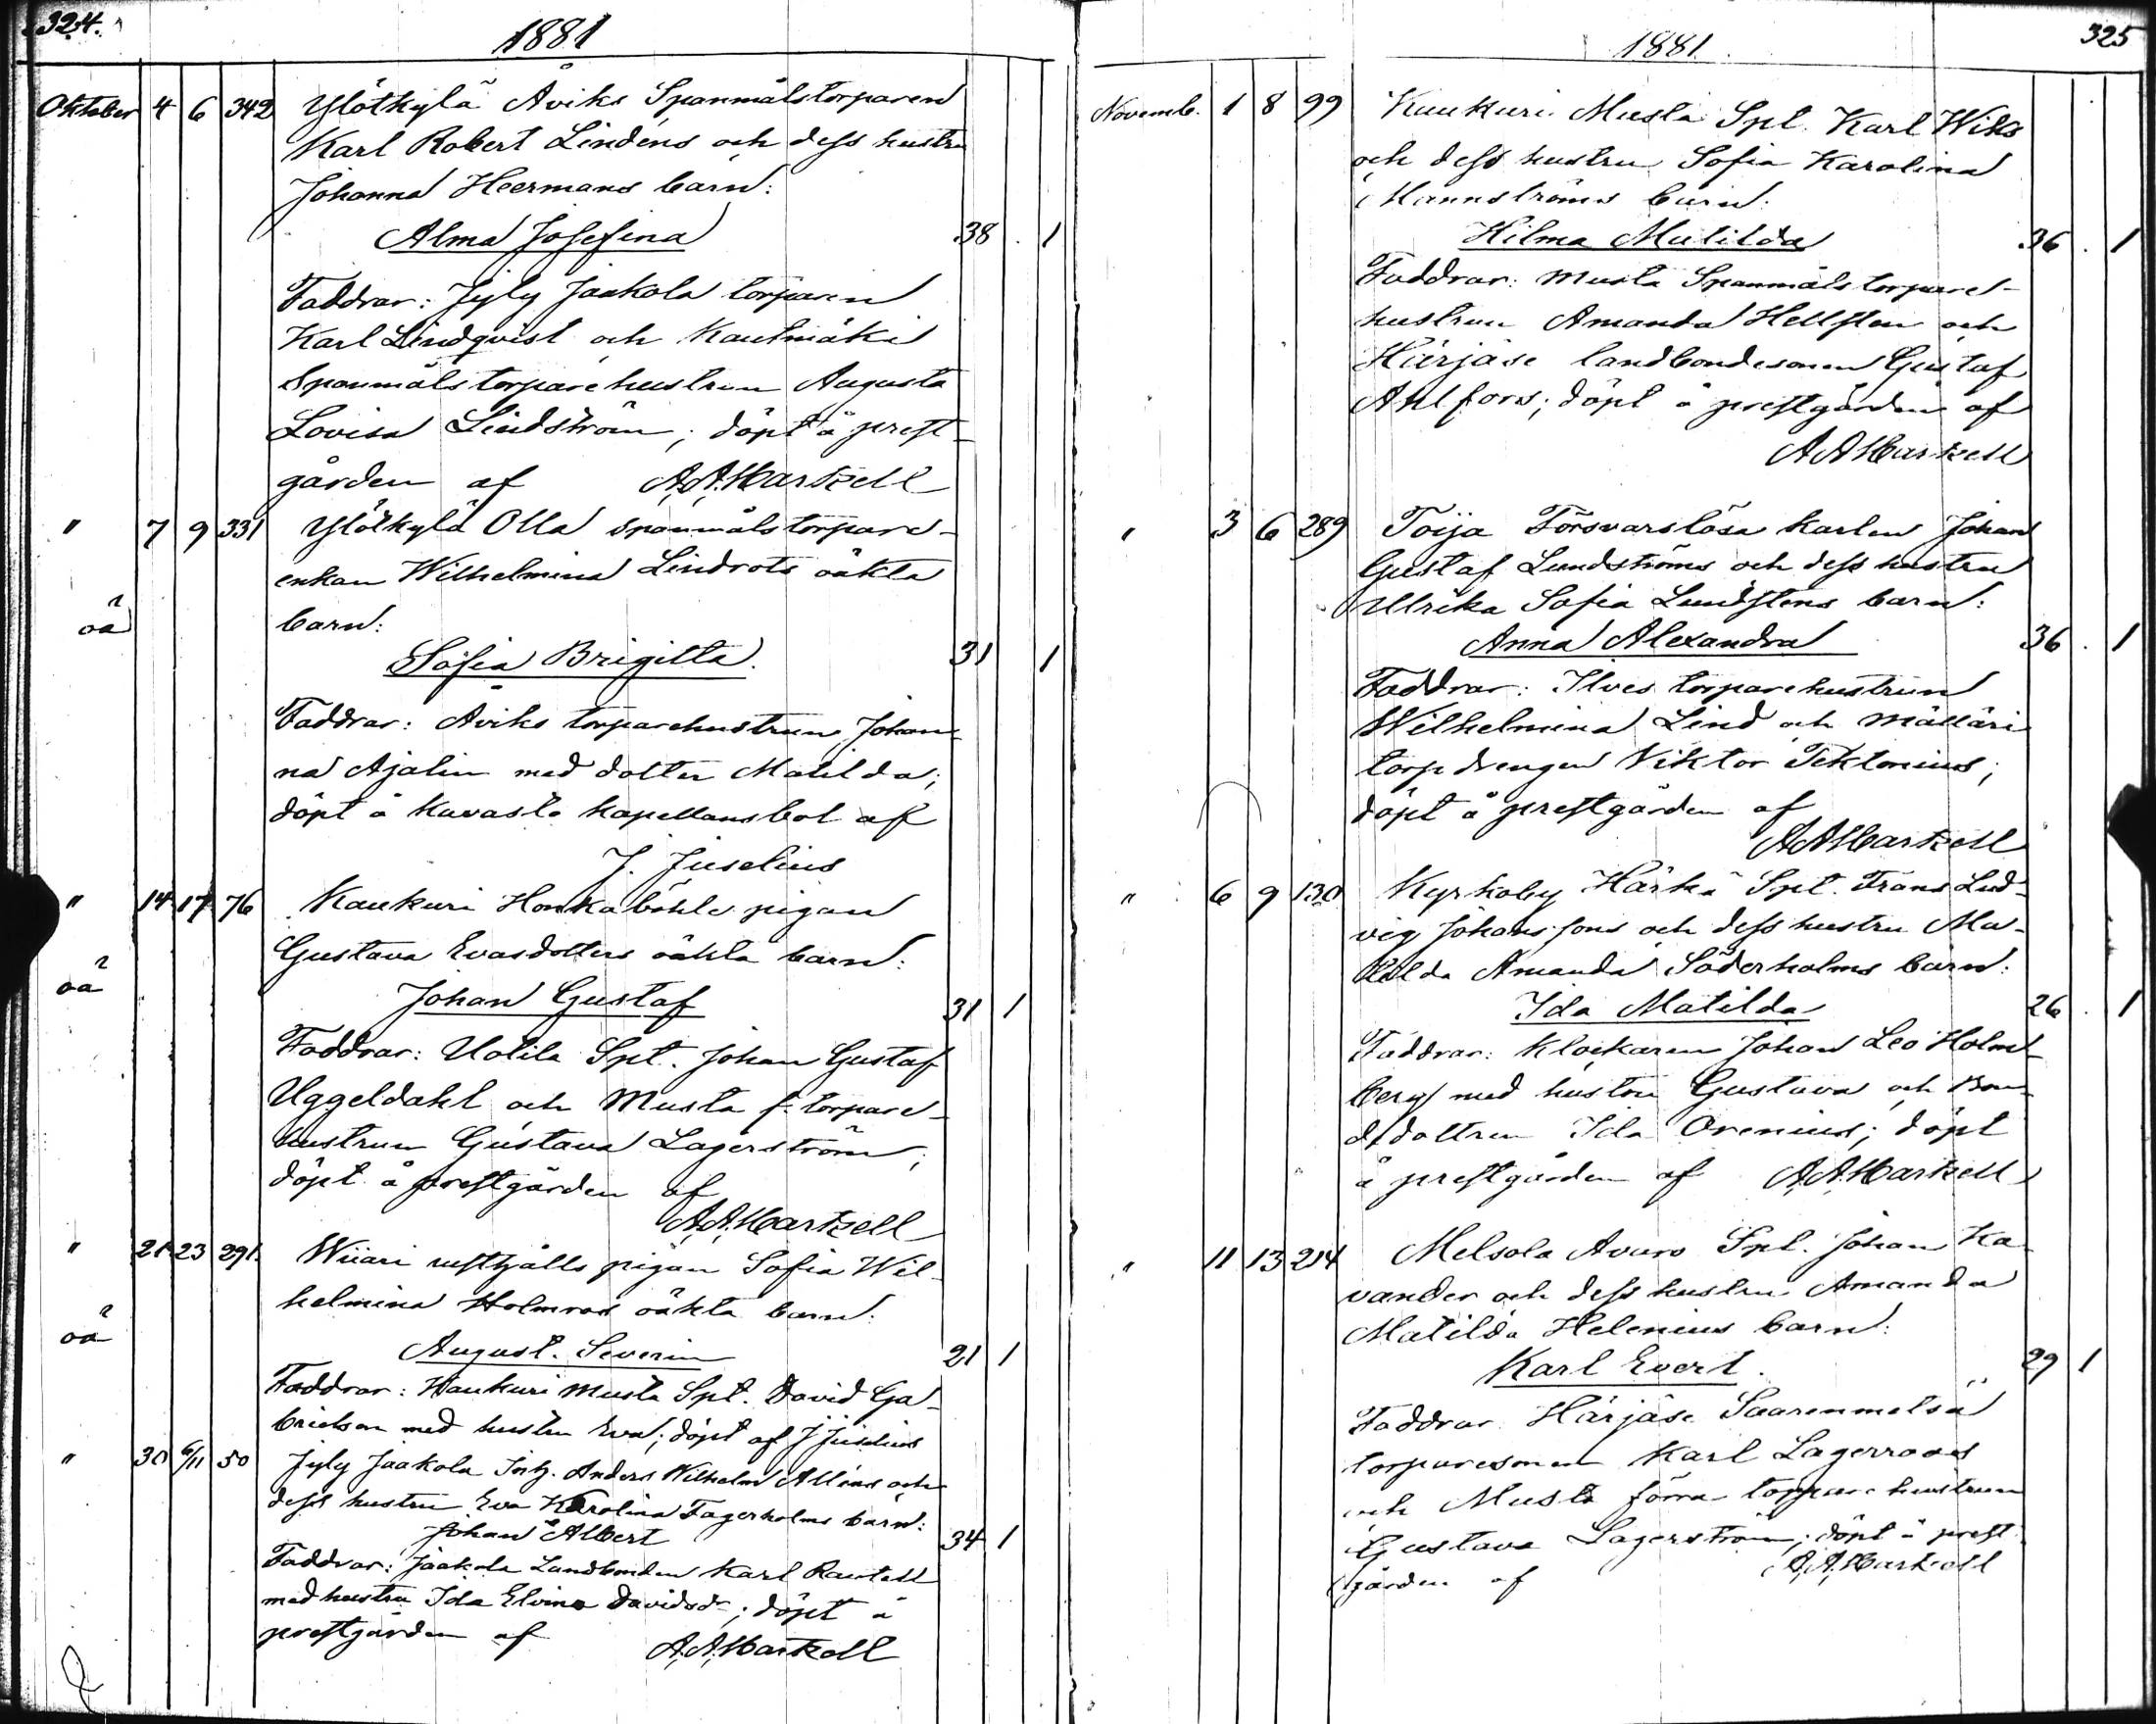 324.
1881
Oktober 4 6 342 Ylötkylä Åviks Spanmålstorparen
Karl Robert Lindéns och dess hustru
Johanna Heermans barn:
Alma Josefina 38 1
Faddrar: Jyly Jaakola torparen
Karl Lindqvist och Kautmäki
Spanmålstorparehustrun Augusta
Lovisa Lindström; döpt å prest-
gården af A.A. Hartzell
" 7 9 331 Ylötkylä Olla spanmålstorpare-
enkan Wilhelmina Lindrots oäkta
oä barn:
Sofia Brigitta. 31 1
Faddrar: Åviks torparehustrun Johan-
na Ajalin med dotter Matilda;
döpt å Kavasto kapellansbol af
J. Juselius
" 14 17 76 Kaukuri Honkaböhle pigan
Gustava Evasdotters oäkta barn:
oä Johan Gustaf 31 1
Faddrar: Uotila Spt. Johan Gustaf
Uggeldahl och Musta f. torpare-
hustrun Gustava Lagerström;
döpt å prestgården af
A.A. Hartzell
" 21 23 291. Wiiari rusthålls pigan Sofia Wil-
helmina Holmroos oäkta barn:
oä August Severin 21 1
Faddrar: Kaukuri Musta Spt. David Ga-
brielson med hustru Eva; döpt af J Juselius
" 30 6/11 50 Jyly Jaakola Inh. Anders Wilhelm Alléns och
dess hustru Eva Karolina Fagerholms barn:
Johan Albert 34 1
Faddrar: Jaakola Landbonden Karl Rautell
med hustru Ida Elvina Davidsdr; döpt å
prestgården af A.A. Hartzell
325
1881.
Novemb. 1 8 99 Kaukuri Musta Spt. Karl Wiks
och dess hustru Sofia Karolina
Mannströms barn:
Hilma Matilda 36 1
Faddrar: Musta Spanmåls torpare-
hustrun Amanda Hellsten och
Härjäse landbondesonen Gustaf
Ahlfors; döpt å prestgården af
A A Hartzell
" 3 6 289 Toija Försvarslösa karlen Johan
Gustaf Lundströms och dess hustru
Ulrika Sofia Lundstens barn:
Anna Alexandra 36 1
Faddrar: Ilves torparehustrun
Wilhelmina Lind och Mälläri
torpdrengen Viktor Tektonius;
döpt å prestgården af
A A Hartzell
" 6 9 130 Kyrkoby Härkä Spt. Frans Lud-
vig Johanssons och dess hustru Ma-
tilda Amanda Söderholms barn:
Ida Matilda 26 1
Faddrar: Klockaren Johan Leo Holm-
berg med hustru Gustava och Bon-
dedottren Ida Orenius; döpt
å prestgården af A.A. Hartzell
" 11 13 214 Melsola Avaro Spt. Johan Ka-
vander och dess hustru Amanda
Matilda Helenius barn:
Karl Evert. 29 1
Faddrar Härjäse Saarenmetsä
torparesonen Karl Lagerroos
och Musta förra torparehustrun
Gustava Lagerström; döpt å prest-
gården af A.A. Hartzell